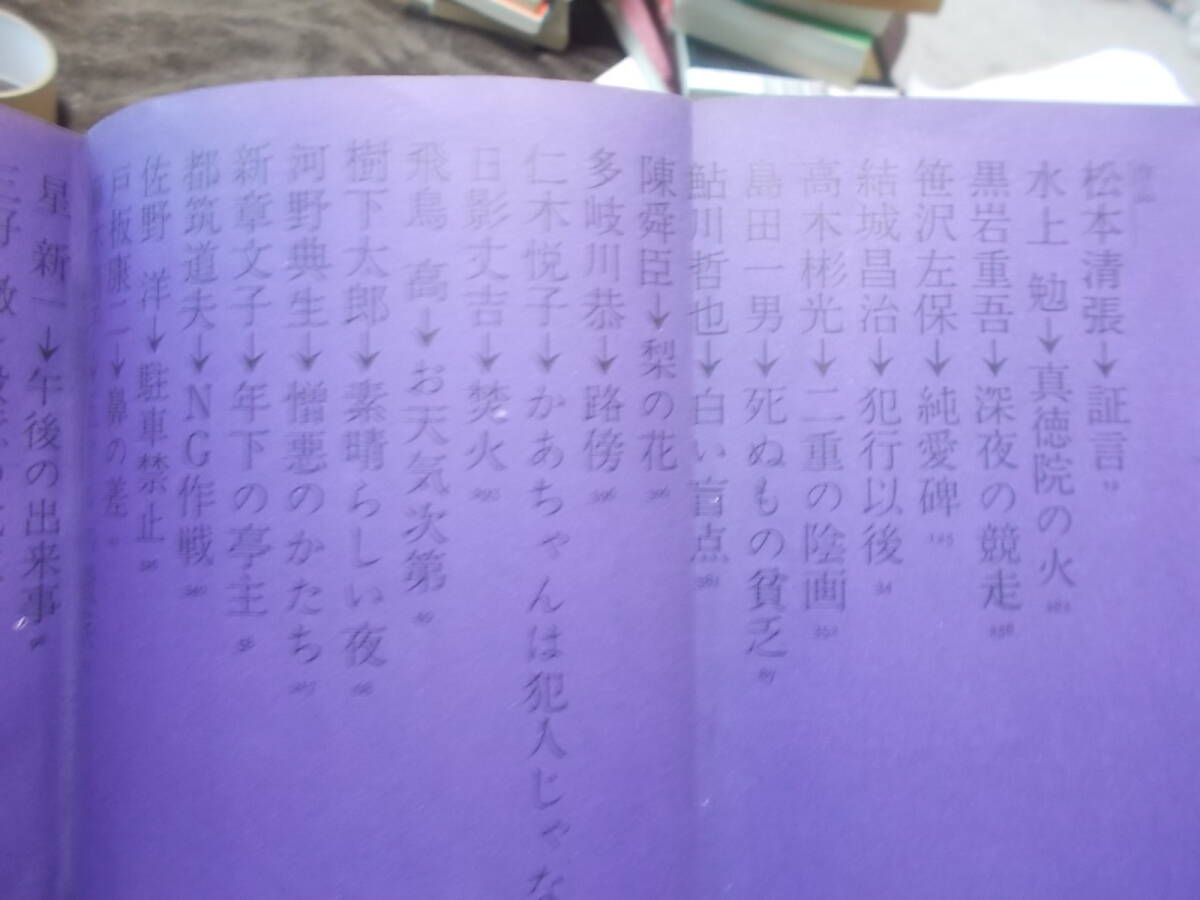 松本清張→証言
水上 勉→真徳院の火
黒岩重吾→深夜の競走
笹沢左保→純愛碑
結城昌治→犯行以後
高木彬光→二重の陰画
島田一男→死ぬもの貧乏
鮎川哲也→白い盲点
陳舜臣→梨の花
多岐川恭→路傍
仁木悦子→かあちゃんは犯人じゃな
日影丈吉→焚火
飛鳥 高→お天気次第
樹下太郎→素晴らしい夜
河野典生→憎悪のかたち
新章文子→年下の亭主
都筑道夫→NG作戦
佐野 洋→駐車禁止
戸板康二→鼻の差
星 新一→午後の出来事